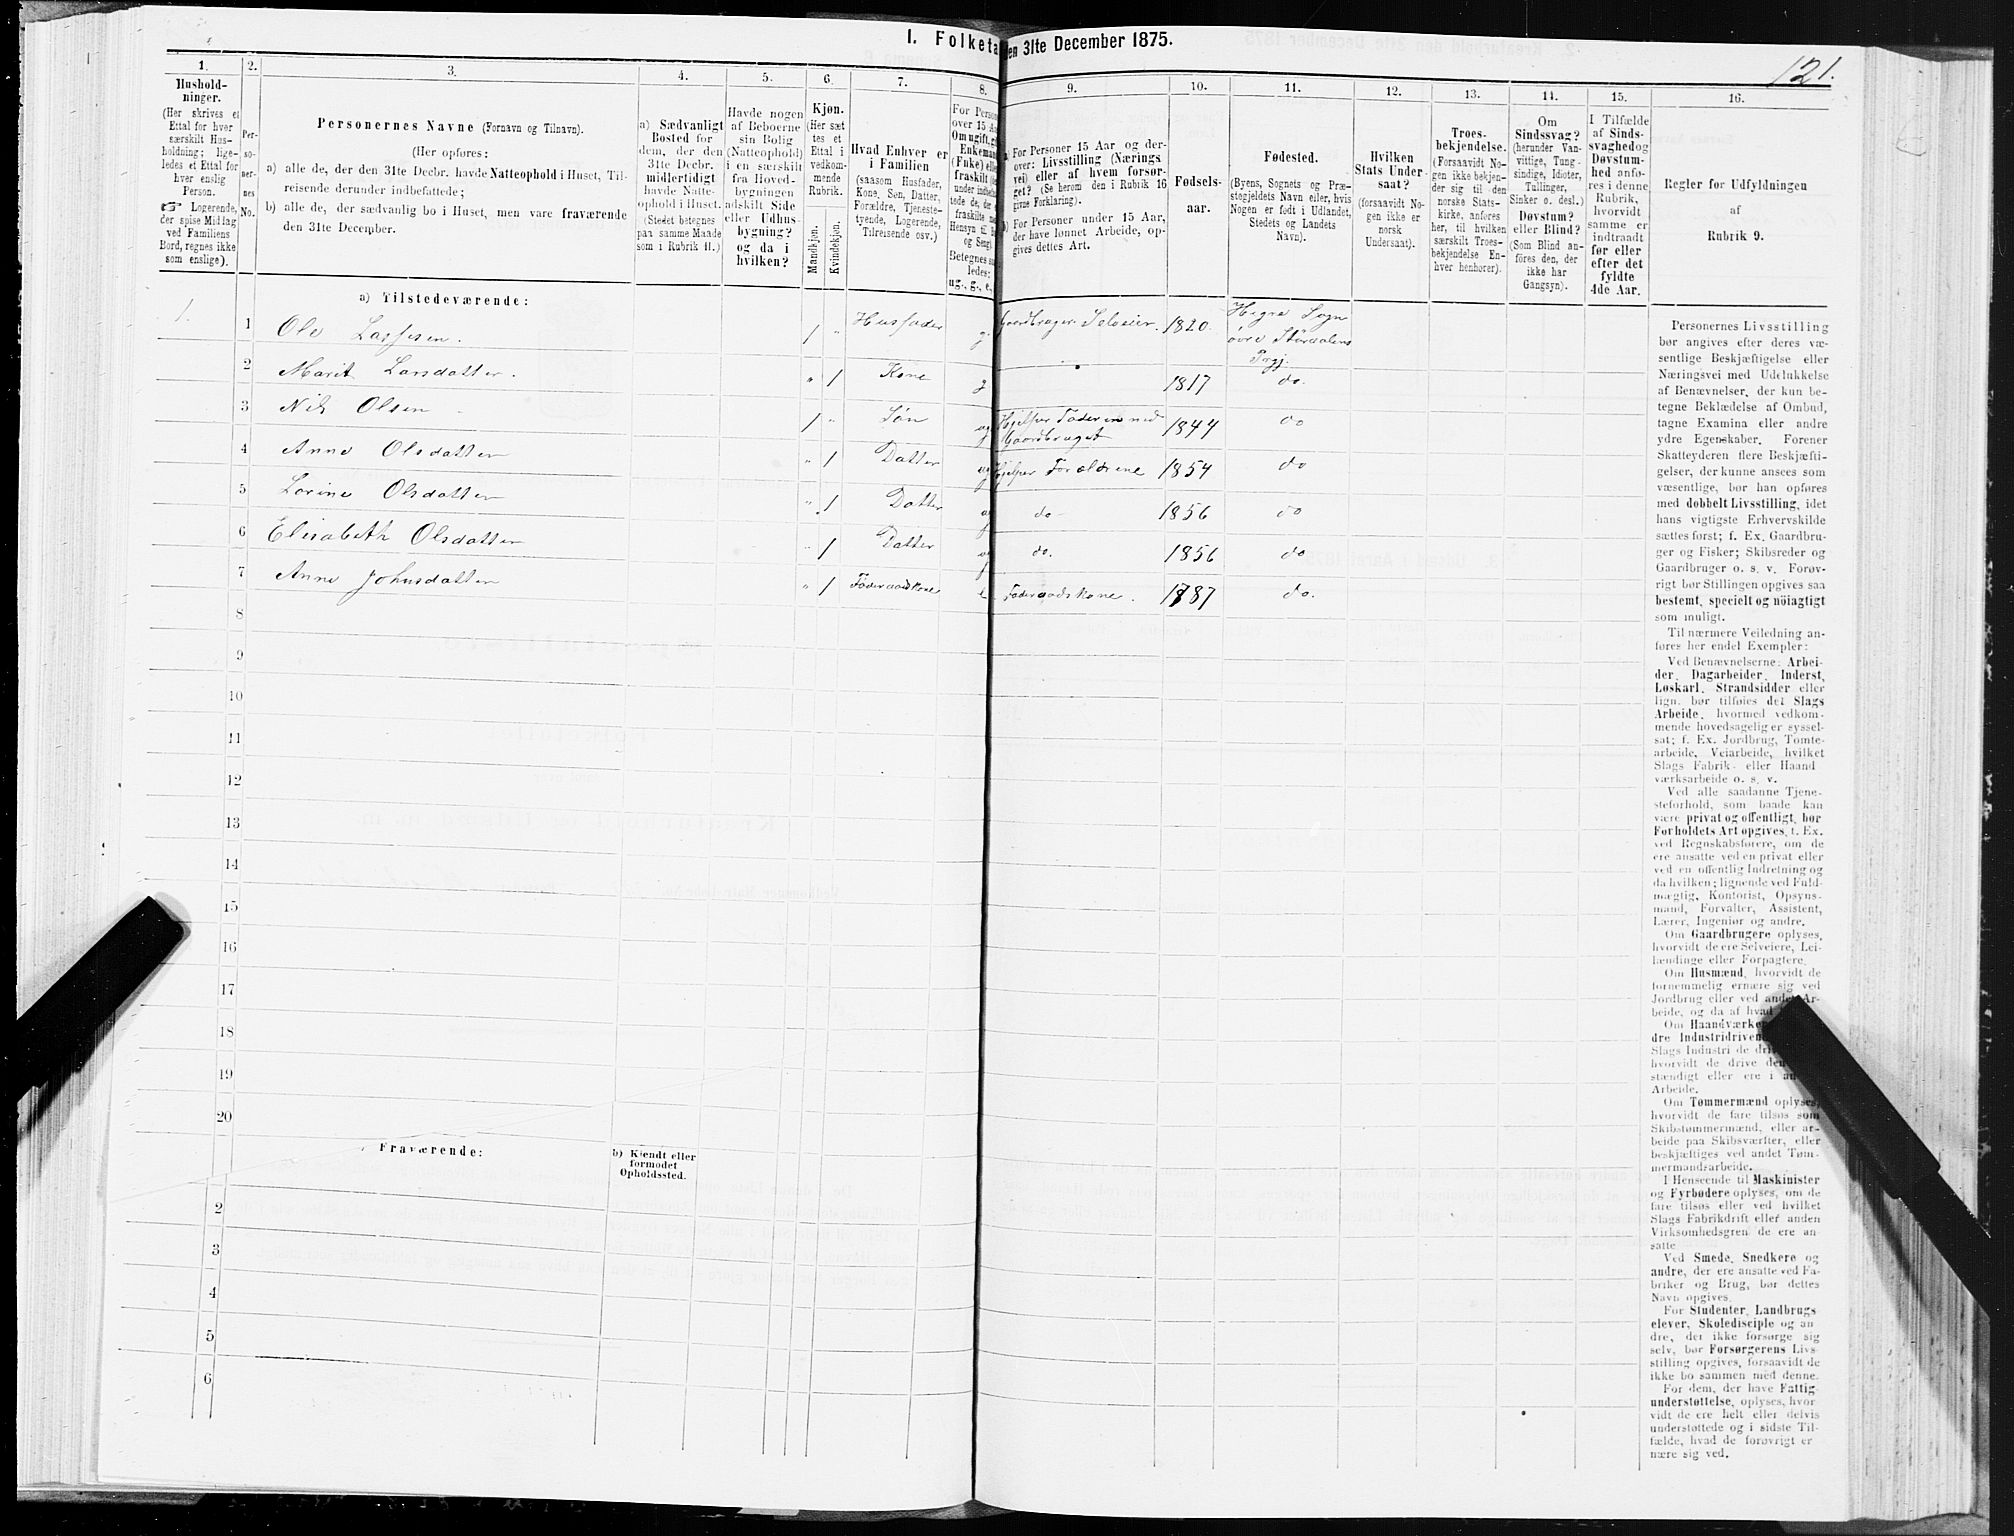 I. Folketa en 31te December 1875.
121.
1.
Hushold-
ninger.
(Her skrives et
Ettal for hver
særskilt Hus-
holdning; lige-
ledes et Ettal for
hver enslig
Person.
☞ Logerende,
der spise Middag
ved Familiens
Bord, regnes ikke
som enslige).
2.
Per-
so-
ner-
nes
No.
3.
Personernes Navne (Fornavn og Tilnavn).
(Her opføres:
a) alle de, der den 31te Decbr. havde Natteophold i Huset, Til-
reisende derunder indbefattede;
b) alle de, der sædvanlig bo i Huset, men vare fraværende
den 31te December.
4.
a) Sædvanligt
Bosted for
dem, der den
31te Decbr.
midlertidigt
havde Natte-
ophold i Huset.
(Stedet betegnes
paa samme Maade
som i Rubrik 11.)
5.
Havde nogen
af Beboerne
sin Bolig
(Natteophold)
i en særskilt
fra Hoved-
bygningen
adskilt Side
eller Udhus-
bygning?
og da i
hvilken?
6.
Kjøn.
(Her sæt
tes et
Ettal i
vedkom-
mende
Rubrik.
Mandkjøn.
Kvindekjøn.
7.
Hvad Enhver er
i Familien
(saasom Husfader,
Kone, Søn, Datter,
Forældre, Tjeneste-
tyende, Logerende,
Tilreisende osv.)
8.
For Person
over 15 Aa
Om ugift, gi
Enkeman
(Enke) elle
fraskilt (i
under indbe
tede de, der
fraskilte m
Hensyn til B
og Seng).
Betegnes saa
ledes:
ug., g., e.,
9.
a) For Personer 15 Aar og der-
over: Livsstilling (Nærings
vei) eller af hvem forsør-
get? (Se herom den i Rubrik 16
givne Forklaring).
b) For Personer under 15 Aar,
der have lønnet Arbeide, op-
gives dettes Art.
10.
Fødsels-
aar.
11.
Fødested.
(Byens, Sognets og Præ-
stegjeldets Navn eller, hvis
Nogen er født i Udlandet,
Stedets og Landets
Navn).
12.
Hvilken
Stats Under
saat?
(forsaavidt No-
gen ikke er
norsk
Undersaat).
13.
Troes-
bekjendelse.
(Forsaavidt No-
gen ikke bekjen-
der sig til den
norske Stats-
kirke, anføres
her, til hvilken
særskilt Troes-
bekjendelse En-
hver henhører).
14.
Om
Sindssvag?
(herunder Van-
vittige, Tung-
sindige, Idioter,
Tullinger,
Sinker o. desl.)
Døvstum?
eller Blind?
(Som Blind an-
føres den, der
ikke har
Gangsyn).
15.
I Tilfælde
af Sinds-
svaghed og
Døvstum-
hed anfø-
res i denne
Rubrik,
hvorvidt
samme er
indtraadt
før eller
efter det
fyldte
4de Aar.
16.
Regler for Udfyldningen
af
Rubrik 9.
a) Tilstedeværende:
1. 1 Ole Larssen. 1 „ Husfader g Gaardbruger Selveier. 1820. Hegre Sogn
øvre Størdalens
Prgj.
2 Marit Larsdatter. „ 1 Kone g 1817 do.
3 Nils Olsen 1 „ Søn ug Hjelper Faderen med
Gaardbruget 1844 do
4 Anne Olsdatter „ 1 Datter ug Hjelper Forældrene 1854 do
5 Lorine Olsdatter „ 1 Datter ug do 1856 do
6 Elisabeth Olsdatter „ 1 Datter ug do. 1856 do
7 Anne Johnsdatter „ 1 Føderaadskone e Føderaadskone. 1787 do.
8
9
10
11
12
13
14
15
16
17
18
19
20
Fraværende:
b) Kjendt eller
formodet
Opholdssted.
2
3
4
5
6
Personernes Livsstilling
bør angives efter deres væ-
sentlige Beskjæftigelse eller
Næringsvei med Udelukkelse
af Benævnelser, der kun be-
tegne Beklædelse af Ombud,
tagne Examina eller andre
ydre Egenskaber. Forener
Skatteyderen flere Beskjæfti-
gelser, der kunne ansees som
væsentlige, bør han opføres
med dobbelt Livsstilling, idet
hans vigtigste Erhvervskilde
sættes først; f. Ex. Gaardbru-
ger og Fisker; Skibsreder og
Gaardbruger o. s. v. Forøv-
rigt bør Stillingen opgives saa
bestemt, specielt og nøiagtigt
som muligt.
Til nærmere Veiledning an-
føres her endel Exempler:
Ved Benævnelserne: Arbei-
der, Dagarbeider, Inderst,
Løskarl, Strandsidder eller
lign. bør tilføies det Slags
Arbeide, hvormed vedkom-
mende hovedsagelig er syssel-
sat; f. Ex. Jordbrug, Tomte-
arbeide, Veiarbeide, hvilket
Slags Fabrik- eller Haand
værksarbeide o. s. v.
Ved alle saadanne Tjene-
steforhold, som baade kan
være privat og offentligt, bør
Forholdets Art opgives, t. Ex.
ved Regnskabsførere, om de
ere ansatte ved en privat eller
ved en offentlig Indretning og
da hvilken; lignende ved Fuld-
mægtig, Kontorist, Opsyns-
mand, Forvalter, Assistent,
Lærer, Ingeniør og andre.
Om Gaardbrugere oplyses,
hvorvidt de ere Selveiere, Lei-
lændinge eller Forpagtere.
Om Husmænd, hvorvidt de
fornemmelig ernære sig ved
Jordbrug eller ved andet Ar-
beide, og da af hvad
Om Haandværke
dre Industridriven
Slags Industri de dri
hvorvidt de drive den
stændigt eller ere i an
Arbeide.
Om Tømmermænd oplyses,
hvorvidt de fare tilsøs som
Skibstømmermænd, eller ar-
beide paa Skibsværfter, eller
beskjæftiges ved andet Tøm-
mermandsarbeide.
I Henseende til Maskinister
og Fyrbødere oplyses, om de
fare tilsøs eller ved hvilket
Slags Fabrikdrift eller anden
Virksomhedsgren de ere an-
satte
Ved Smede, Snedkere og
andre, der ere ansatte ved Fa-
briker og Brug, bør dettes
Navn opgives.
For Studenter, Landbrugs
elever, Skoledisciple og an
dre, der ikke forsørge sig
selv, bør Forsørgerens Livs-
stilling opgives, forsaavidt de
ikke bo sammen med denne.
For dem, der have Fattig
understøttelse, oplyses, hvor
vidt de ere helt eller delvis
understøttede og i sidste Til-
fælde, hvad de forøvrigt er
nære sig ved.